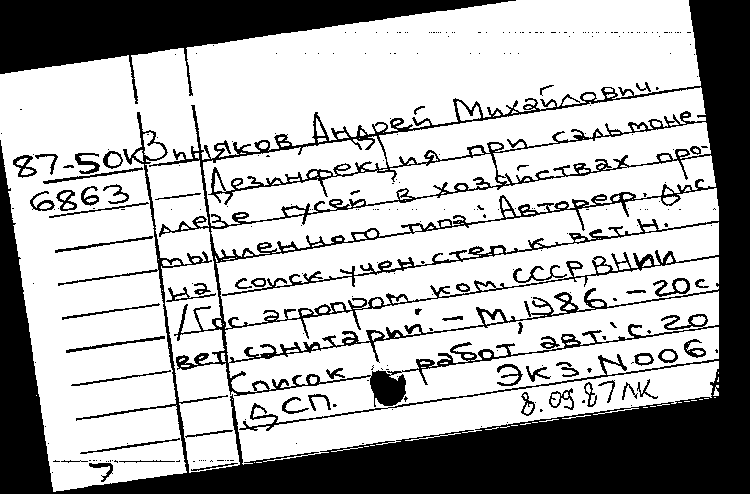 87-50К
6863
Зинняков, Андрей Михайлович.
Дезинфекция при сальмоне-
ллезе гусей в хозяйствах про-
мышленного типа: Автореф. дис.
на соиск. учен. степ. к. вет. н.
/Гос. агропром ком. СССР, ВНИИ
вет. санитарии. - М., 1986. - 20 с.
Список работ авт.: с. 20
ДСП. Экз. N 006.
8.09.87 ЛК